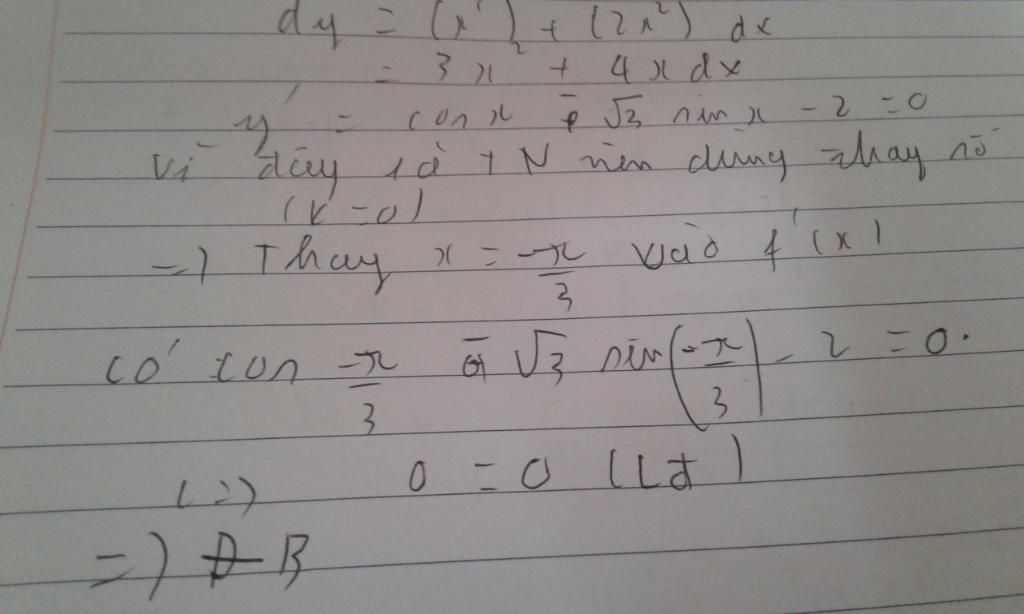 dy = (x³) + (2x²) dx
= 3x² + 4x dx
y' = cos x - √3 sin x - 2 = 0
Vì đây là TN nên dùng thay số
(K=0)
=) Thay x = -π/3 vào f'(x)
có cos -π/3 - √3 sin(-π/3) - 2 = 0.
(=) 0 = 0 (Lđ)
=) B